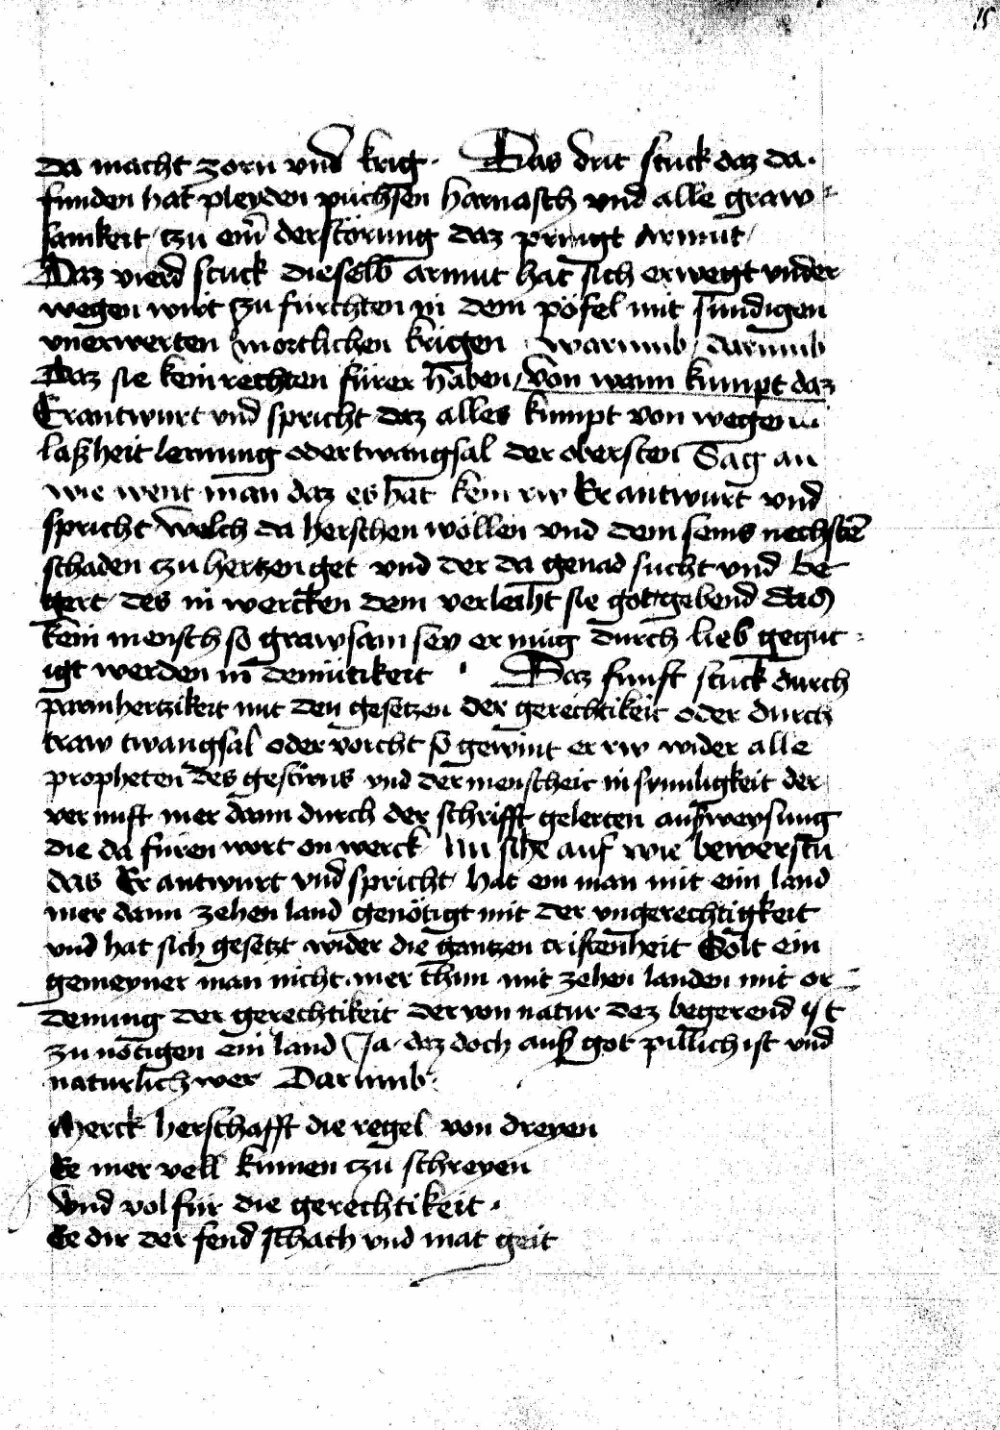 15
da macht zorn vnd krig · Das drit stuck daz da ·
funden hat pleyden püchsen harnasch vnd alle graw⸗
samkeit / zu eim̄ derstörung daz pringt Armut /
Daz vierd stuck dieselb armut hat sich erwegt vnder
wegen wirt zu fürchten in dem pöfel mit sundigen
vnerwerten mortlichen krigen · warumb / darumb
Daz sie kein rechten fürer haben / von wann kumpt daz
Er antwurt vnd spricht daz alles kumpt von wegen
laßheit lernung oder twangsal der obersten Sag an
wie went man daz es hat kein rw Er antwurt vnd
spricht welch da herschen wöllen vnd dem seins nechstē
schaden zu hertzen get vnd der da genad sucht vnd be
gert / des in wercken dem verleiht sie got gebend das
kein mensch so grawsam sey er müg durch lieb gegut⸗
igt werden in demütikeit · Daz funft stuck durch
parmhertzikeit mit den gesetzen der gerechtikeit oder durch
traw twangsal oder vorcht so gewint er rw wider alle
propheten des gestirns vnd der menscheit in synnligkeit der
vernuft mer dann durch der schrifft gelerten außweysung
die da füren wort on werck / Nu sihe auf wie bewerstu
das Er antwurt vnd spricht / hat ein man mit eim land
mer dann zehen land genötigt mit der vngerechtigkeit
vnd hat sich gesetzt wider die gantzen cristenheit Solt ein
gemeyner man nicht mer thun mit zehen landen mit or⸗
denung der gerechtikeit der von natur dez begerend ist
zu nötigen ein land Ja · daz doch auß got pillich ist vnd
naturlich wer Darumb ·
Merck herschafft die regel von dreyen
Ee mer vell kumen zu schreyen
Vnd vol für die gerechtikeit ·
Ee dir der feind schach vnd mat geit